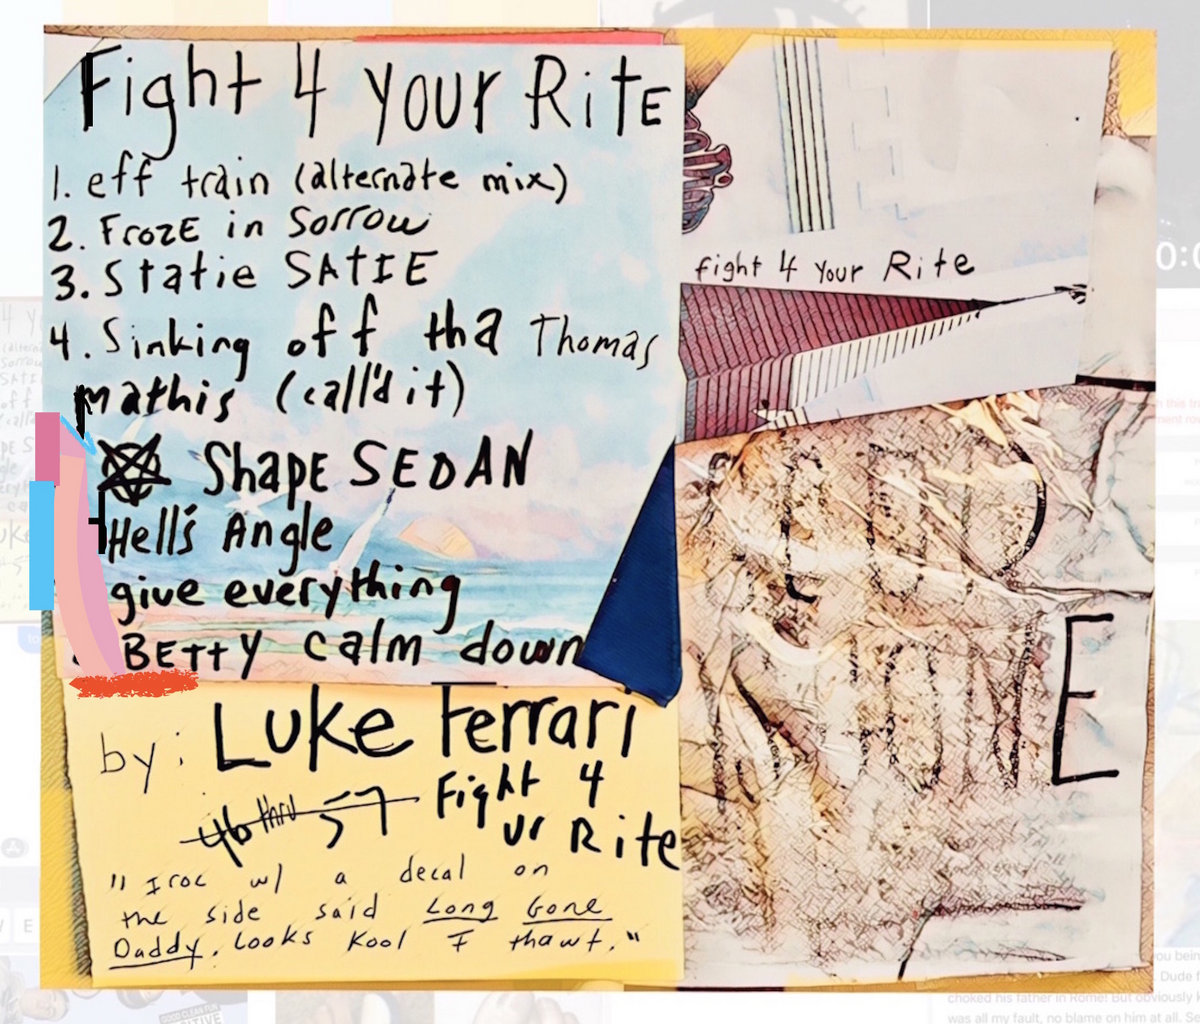 Fight 4 your RitE
1. eff train (alternate mix)
2. FrozE in Sorrow
3. Statie SATIE
4. Sinking off tha Thomas
mathis (call'd it)
ShapE SEDAN
Hell's Angle
give everything
BETTY calm down
by: Luke Ferrari
46 thru 57 Fight 4
ur Rite
"Iroc w/ a decal on
the side said Long Gone
Daddy. Looks Kool I thawt."
fight 4 your Rite
E
0:0
choked his father in Rome! But obviously
was all my fault, no blame on him at all.